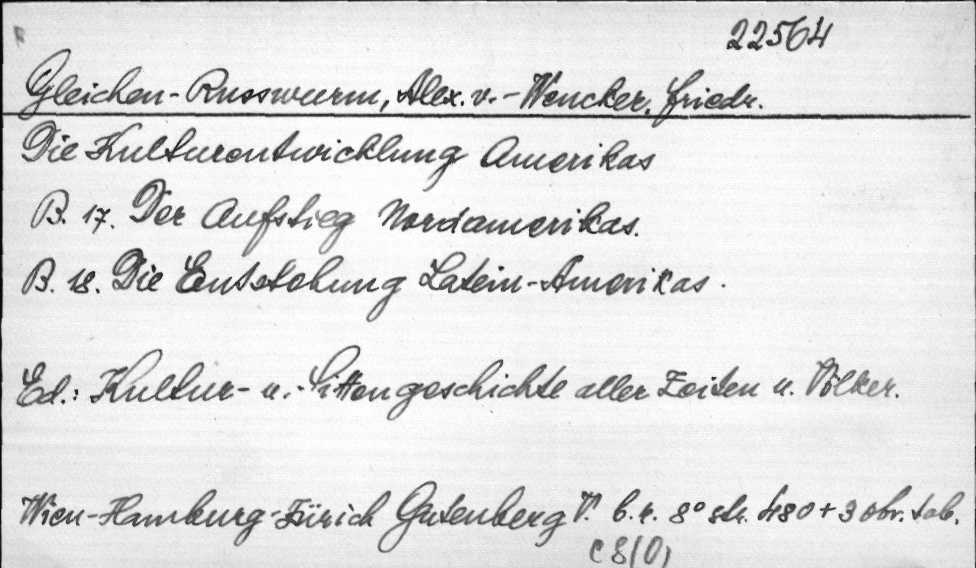 22564
Gleichen-Russwurm, Alex. v.-Wencker, Friedr.
Die Kulturentwicklung Amerikas
B. 17. Der Aufstieg Nordamerikas.
B. 18. Die Entstehung Latein-Amerikas.
Ed.: Kultur- u.-Sittengeschichte aller Zeiten u. Völker.
Wien-Hamburg-Zürich Gutenberg V. b.r. 8° str. 480+3 obr. tab.